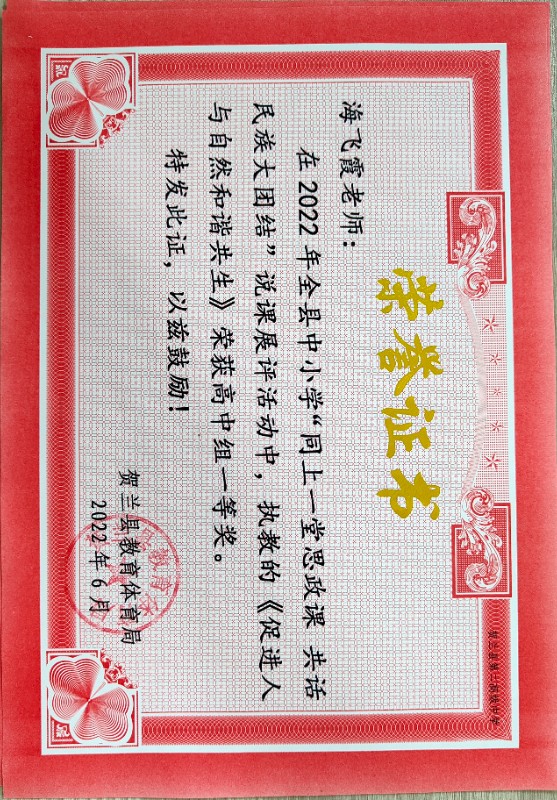 荣誉证书
海飞霞老师：
在 2022 年全县中小学“同上一堂思政课 共话
民族大团结”说课展评活动中，执教的《促进人
与自然和谐共生》荣获高中组一等奖。
特发此证，以兹鼓励！
贺兰县教育体育局
2022 年 6 月